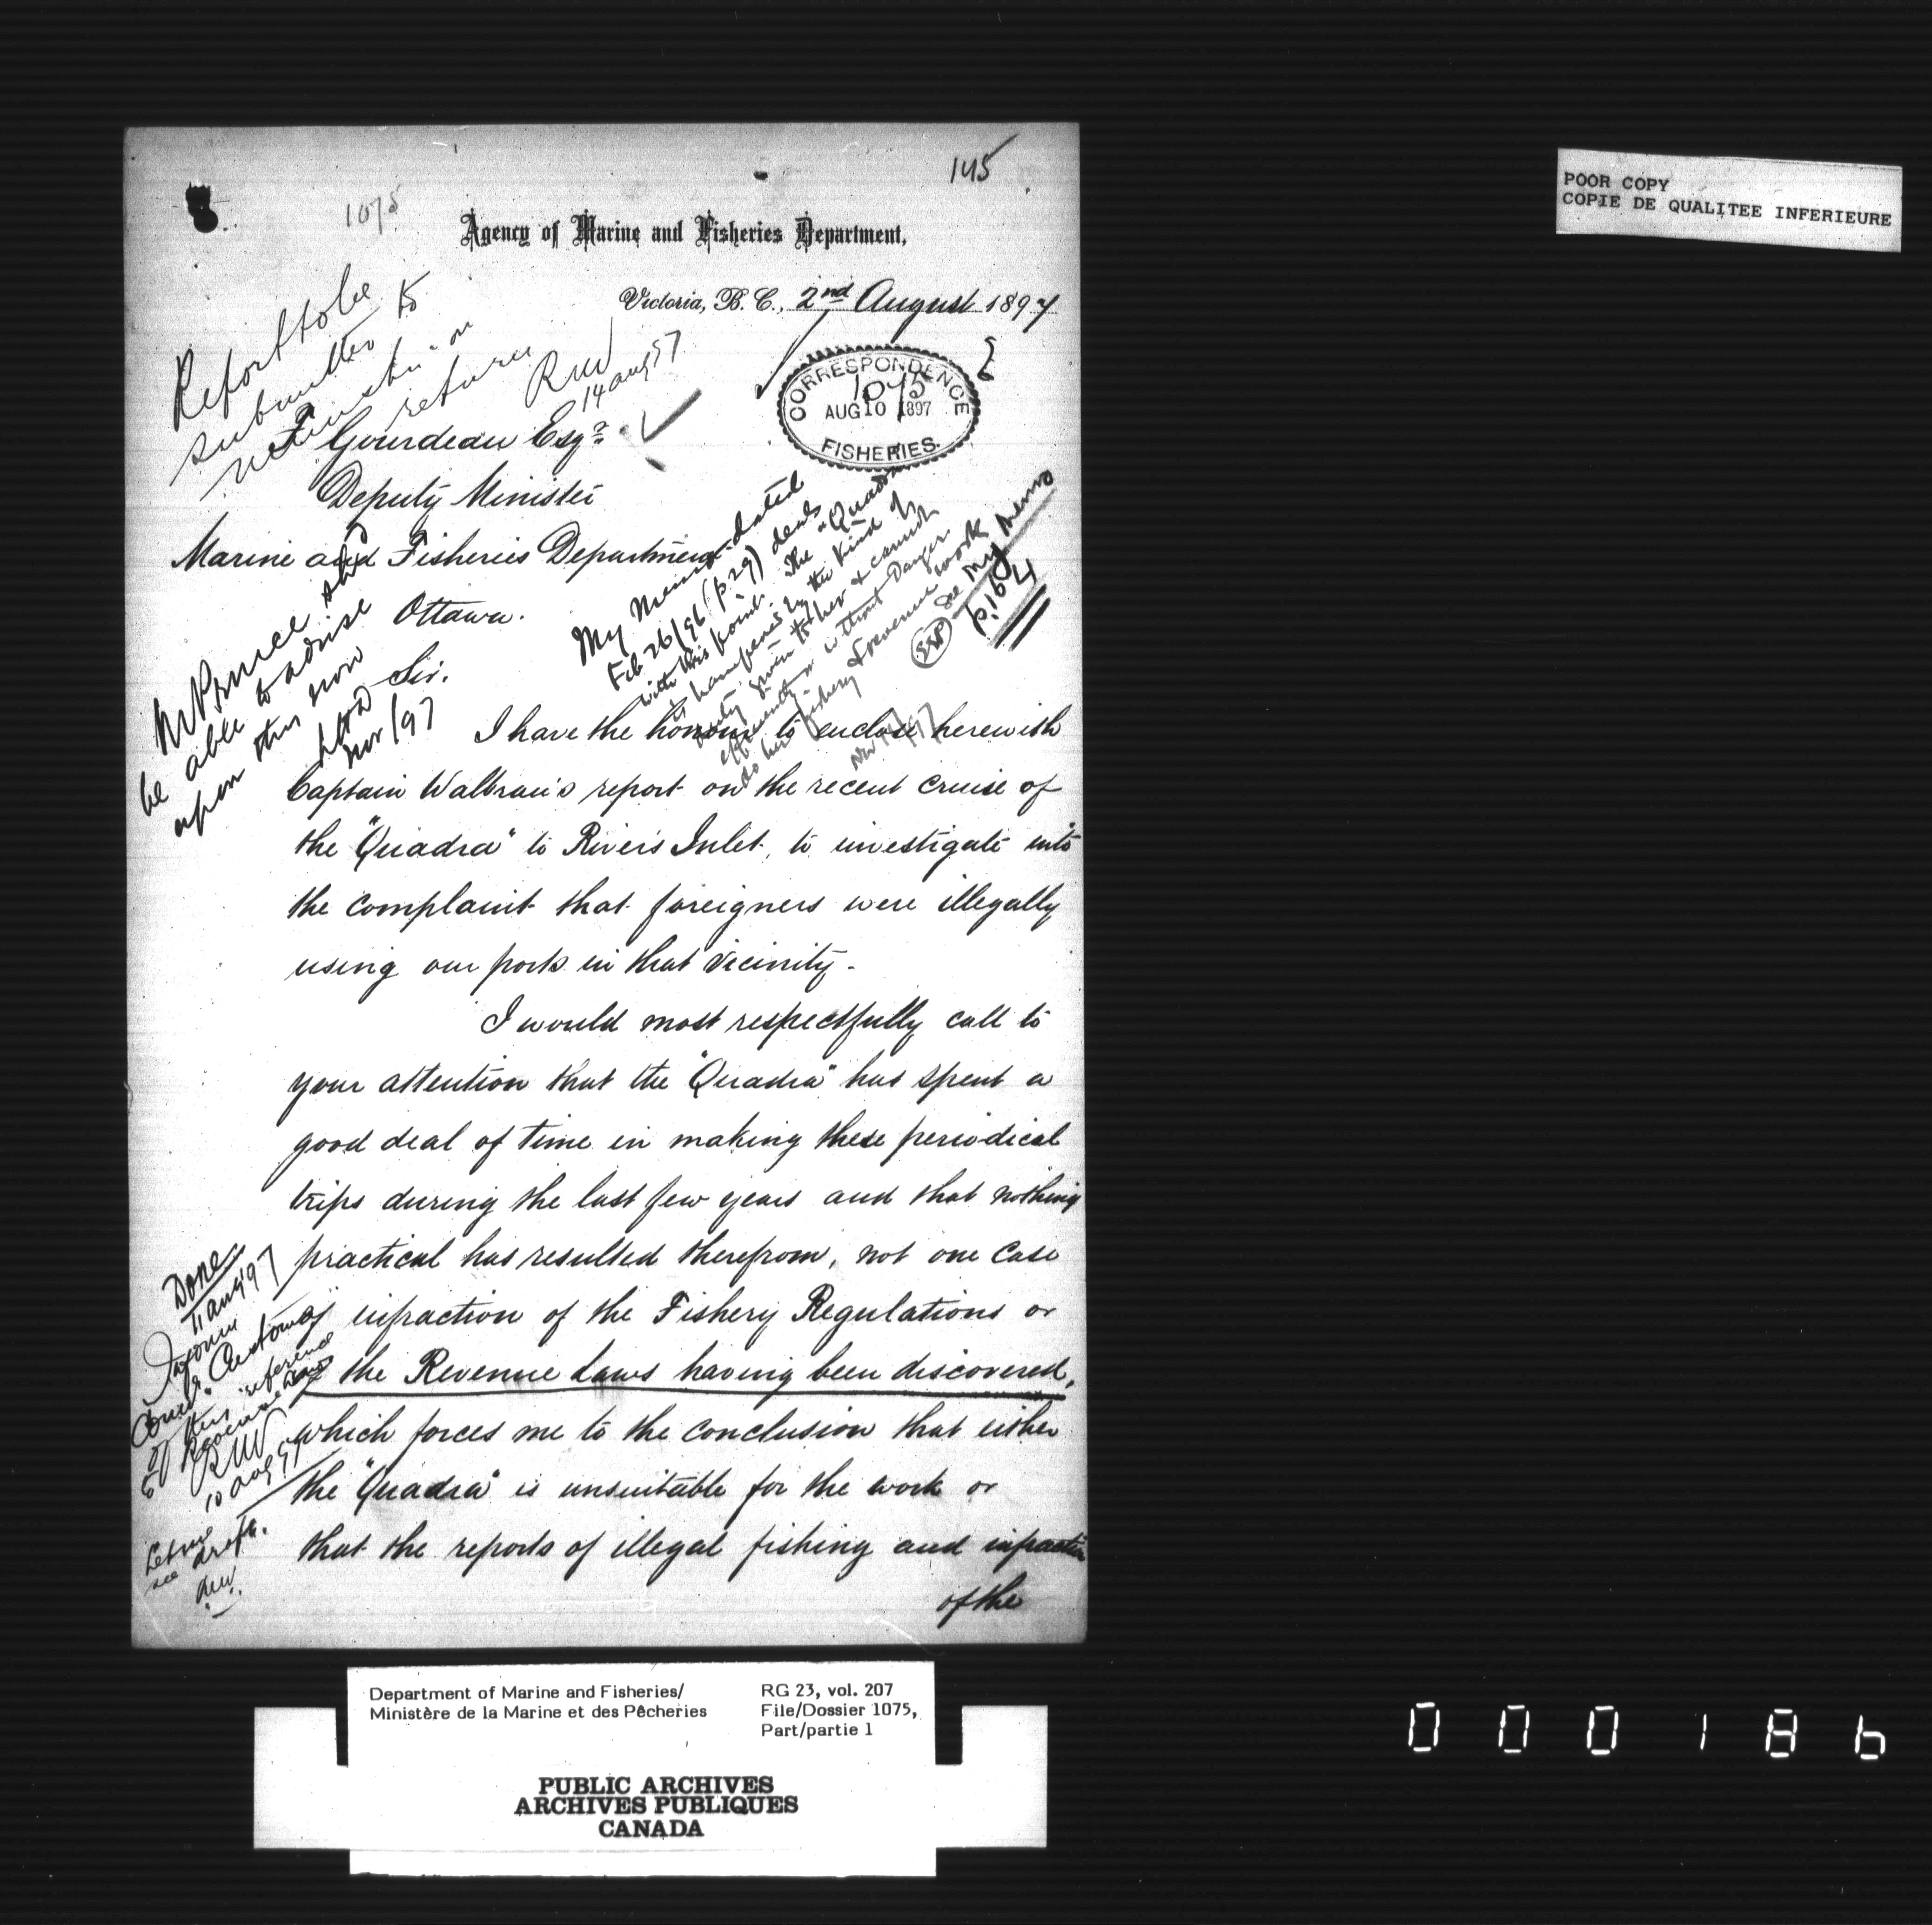 145
1075
POOR COPY
COPIE DE QUALITEE INFERIEURE
Agency of Marine and Fisheries Department,
Victoria, B. C., 2nd August 1897
Report to be
submitted to
return
RW
14 Aug 97
CORRESPONDENCE
1075
AUG 10 1897
FISHERIES.
F Gourdeau Esqr.
Deputy Minister
Marine and Fisheries Department
Ottawa.
My Memo dated
Feb 26/96 (p. 29) deals
with this point. The "Quadra
is hampered by the kind of
duty given to her & cannot
efficiently or without danger
do her fishery & revenue work
See My memo
p. 164
EEP
Nov 97
Mr Prince shd
be able to advise
upon this now
Nov/97
Sir.
I have the honour to enclose herewith
Captain Walbran's report on the recent cruise of
the "Quadra" to Rivers Inlet, to investigate into
the complaint that foreigners were illegally
using our ports in that vicinity.
I would most respectfully call to
your attention that the "Quadra" has spent a
good deal of time in making these periodical
trips during the last few years and that nothing
practical has resulted therefrom, not one case
of infraction of the Fishery Regulations or
of the Revenue Laws having been discovered,
which forces me to the conclusion that either
the "Quadra" is unsuitable for the work or
that the reports of illegal fishing and infraction
of the
Done
11 Aug 97
Inform
Comr. Customs
of this reference
to Revenue Laws
RW
10 Aug 97
Let me
see draft.
RW.
Department of Marine and Fisheries/
Ministère de la Marine et des Pêcheries
RG 23, vol. 207
File/Dossier 1075,
Part/partie 1
PUBLIC ARCHIVES
ARCHIVES PUBLIQUES
CANADA
000186